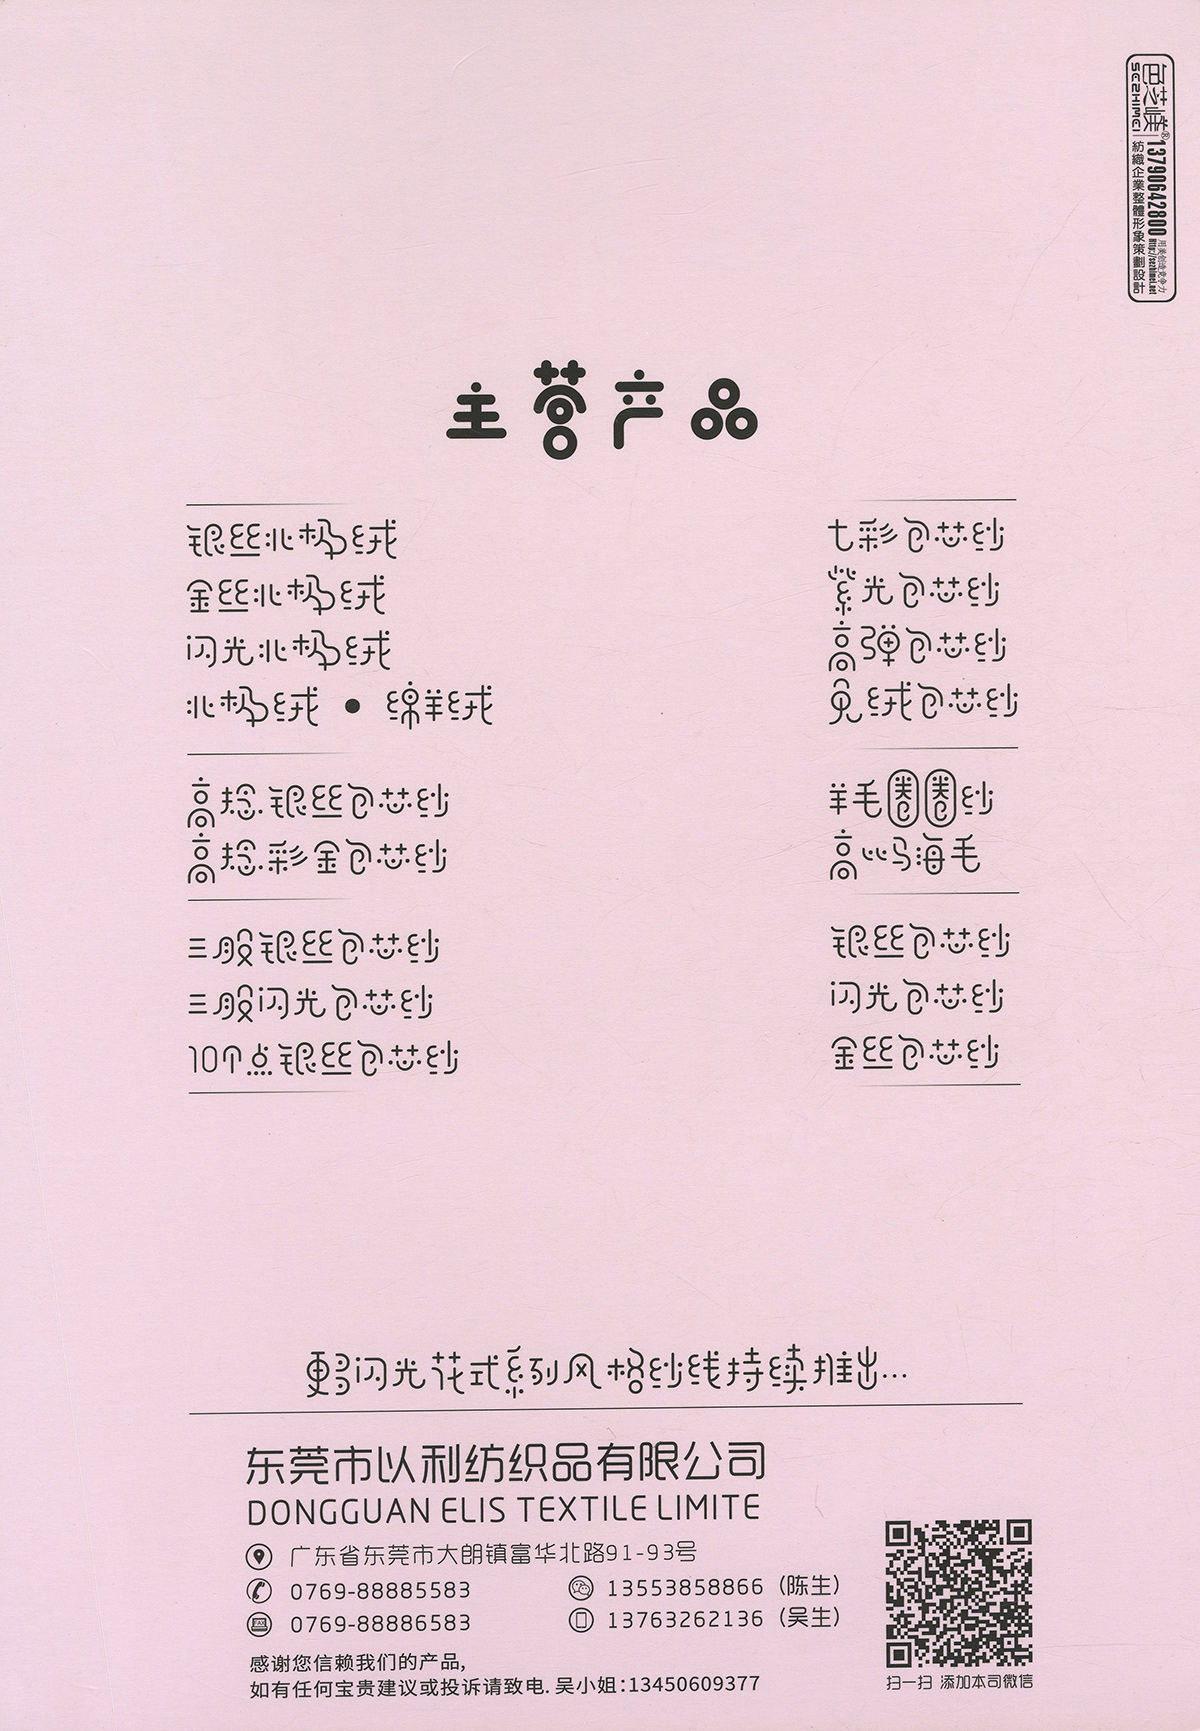 色芝媄®
SEZHIMEI
13790642800
用美创造竞争力
http://sezhimei.net
紡織企業整體形象策劃設計
主营产品
银丝北极绒
金丝北极绒
闪光北极绒
北极绒 ● 绵羊绒
高捻.银丝包芯纱
高捻.彩金包芯纱
三股银丝包芯纱
三股闪光包芯纱
10个点银丝包芯纱
七彩包芯纱
紫光包芯纱
高弹包芯纱
兔绒包芯纱
羊毛圈圈纱
高比马海毛
银丝包芯纱
闪光包芯纱
金丝包芯纱
更多闪光花式系列风格纱线持续推出...
东莞市以利纺织品有限公司
DONGGUAN ELIS TEXTILE LIMITE
广东省东莞市大朗镇富华北路91-93号
0769-88885583
13553858866 (陈生)
FAX
0769-88886583
13763262136 (吴生)
感谢您信赖我们的产品,
如有任何宝贵建议或投诉请致电.吴小姐:13450609377
扫一扫 添加本司微信